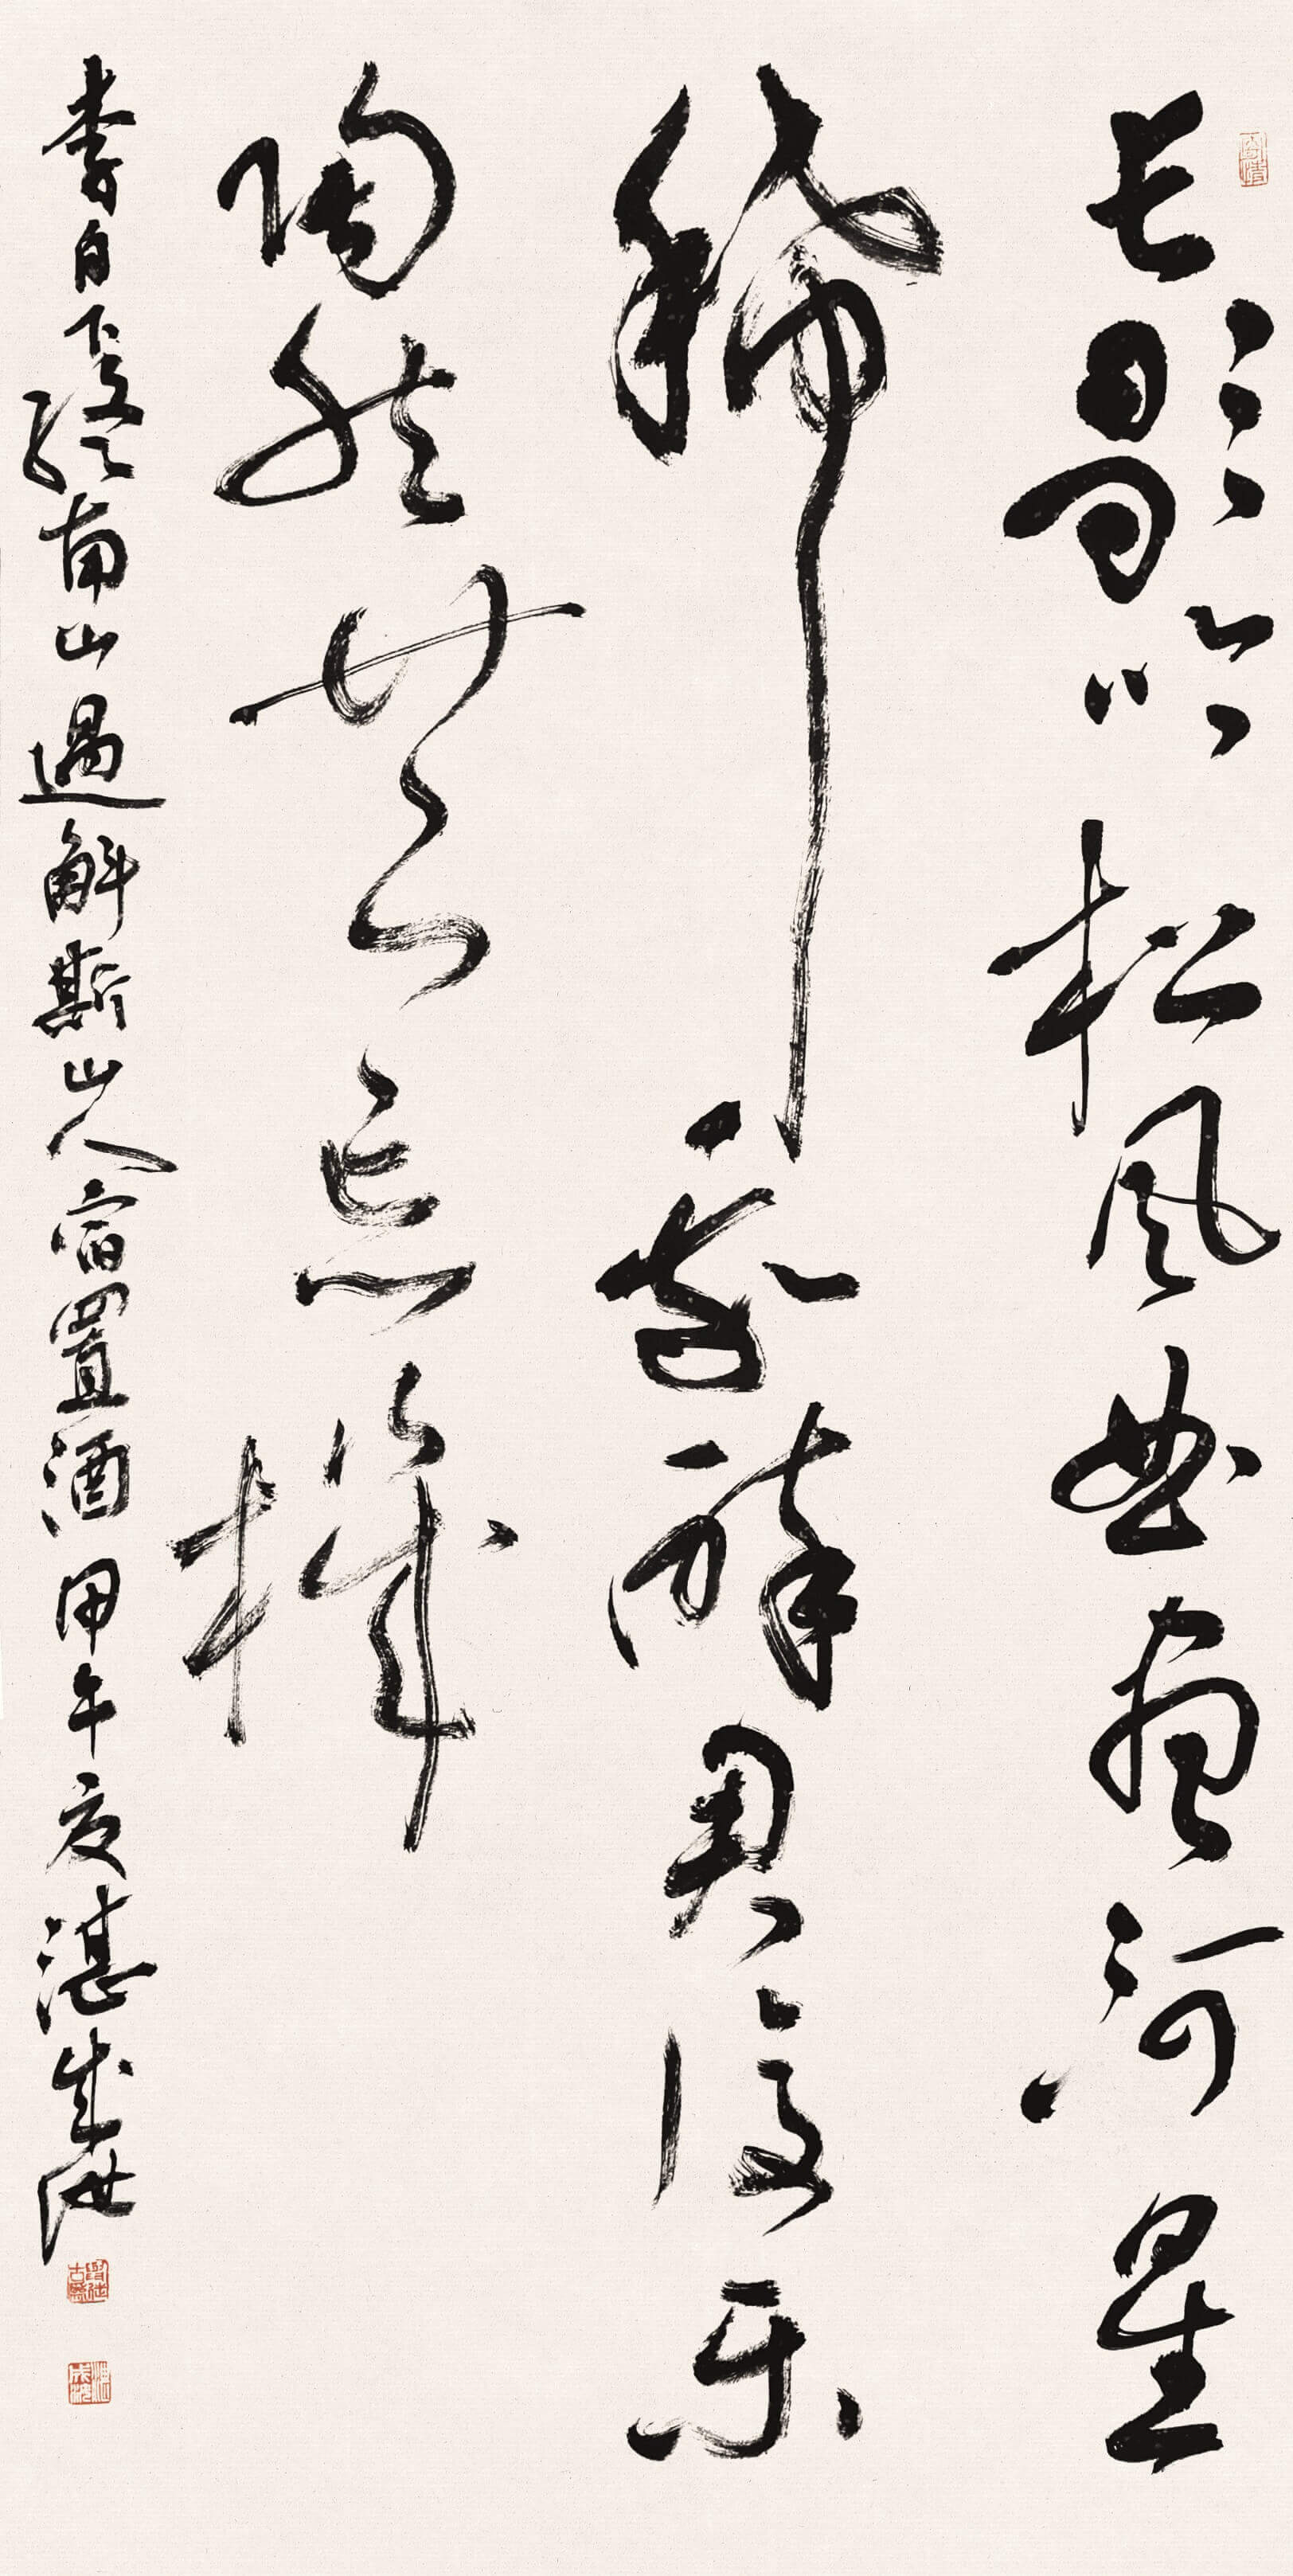 长歌吟松风曲尽河星
稀我醉君复乐
陶然共忘機
李白下终南山過斛斯山人宿置酒甲午夏湛成海